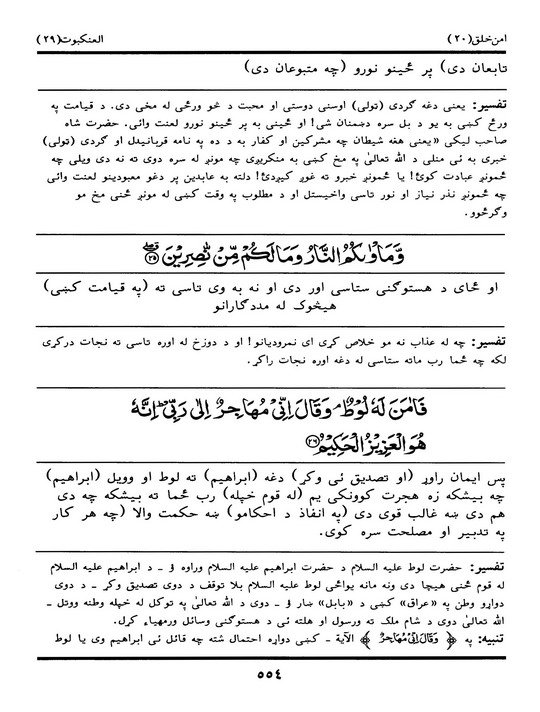 امن خلق (٢٠) العنكبوت (٢٩)
تابعان دی) پر ځینو نورو (چه متبوعان دی)
تفسیر: یعنی دغه گردی (ټولی) اوسنی دوستی او محبت د څو ورځی له مخی دی. د قیامت په
ورځ کښی به یو د بل سره دښمنان شی! او ځینی به پر ځینو نورو لعنت وائی. حضرت شاه
صاحب لیکی «یعنی هغه شیطان چه مشرکین او کفار به د ده په نامه قربانیدل او گردی (ټولی)
خبری به ئی منلی د الله تعالیٰ په مخ کښی به منکریږی چه مونږ له سره دوی ته نه دی ویلی چه
ځمونږ عبادت کوئ! یا ځمونږ خبرو ته غوږ کیږدئ! دلته به عابدین پر دغو معبودینو لعنت وائی
چه ځمونږ نذر نیاز او نور تاسی واخیستل او د مطلوب په وقت کښی له مونږ څنی مخ مو
وگرځوو.
وَّمَاْوٰىكُمُ النَّارُ وَمَا لَكُمْ مِّنْ نّٰصِرِيْنَ ﴿٢٥﴾
او ځای د هستوگنی ستاسی اور دی او نه به وی تاسی ته (په قیامت کښی)
هیڅوک له مددگارانو
تفسیر: چه له عذاب نه مو خلاص کړی ای نمرودیانو! او د دوزخ له اوره تاسی ته نجات درکړی
لکه چه ځما رب ماته ستاسی له دغه اوره نجات راکړ.
فَاٰمَنَ لَهٗ لُوْطٌ ۘ وَقَالَ اِنِّىْ مُهَاجِرٌ اِلٰى رَبِّىْ ۭ اِنَّهٗ
هُوَ الْعَزِيْزُ الْحَكِيْمُ ﴿٢٦﴾
پس ایمان راوړ (او تصدیق ئی وکړ) دغه (ابراهیم) ته لوط او وویل (ابراهیم)
چه بیشکه زه هجرت کوونکی یم (له قوم خپله) رب ځما ته بیشکه چه دی
هم دی ښه غالب قوی دی (په انفاذ د احکامو) ښه حکمت والا (چه هر کار
په تدبیر او مصلحت سره کوی.
تفسیر: حضرت لوط علیه السلام د حضرت ابراهیم علیه السلام وراره ؤ ـ د ابراهیم علیه السلام
له قوم څنی هیچا دی ونه مانه یواځی لوط علیه السلام بلا توقف د دوی تصدیق وکړ ـ د دوی
دواړو وطن په «عراق» کښی د «بابل» ښار ؤ ـ دوی د الله تعالیٰ په توکل له خپله وطنه ووتل ـ
الله تعالیٰ دوی د شام ملک ته ورسول او هلته ئی د هستوگنی وسائل ورمهیاء کړل.
تنبیه: په ﴿وَقَالَ اِنِّىْ مُهَاجِرٌ﴾ الآیة ـ کښی دواړه احتمال شته چه قائل ئی ابراهیم وی یا لوط
٥٥٤